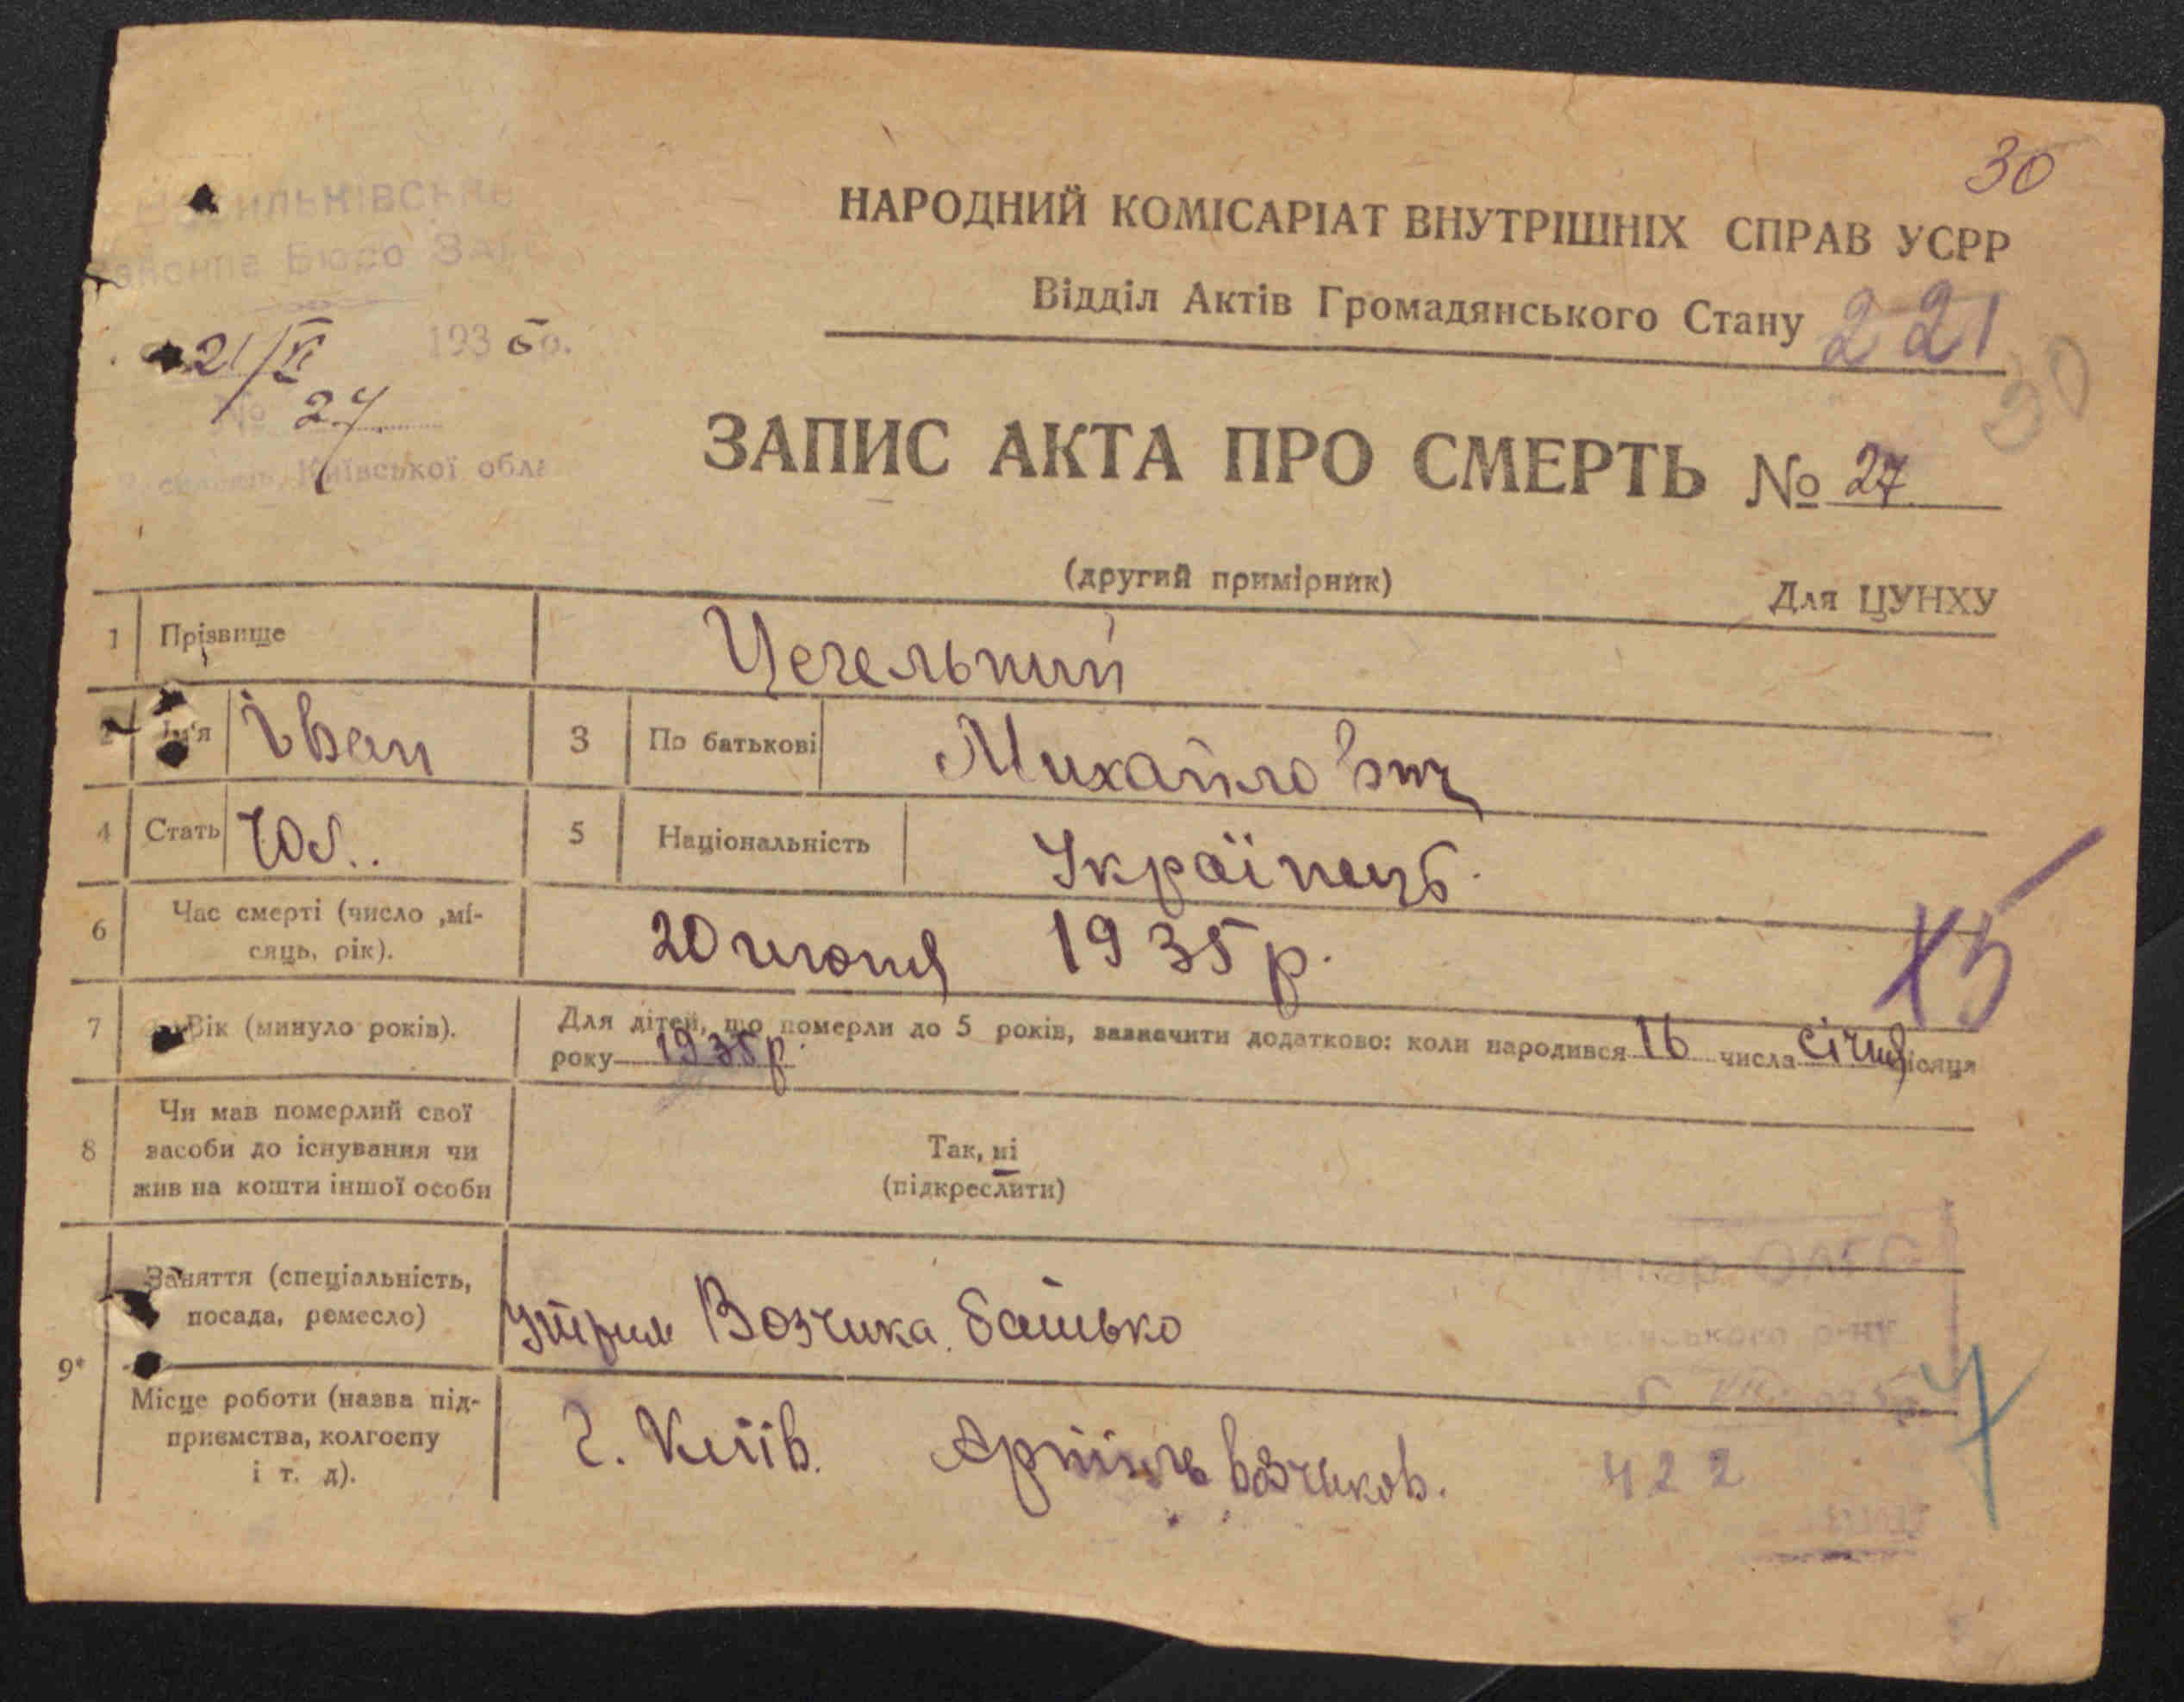 30
НАРОДНИЙ КОМІСАРІАТ ВНУТРІШНІХ СПРАВ УСРР
Відділ Актів Громадянського Стану
221
30
Бюро
21/VI 1935р.
№ 27
Київської обла
ЗАПИС АКТА ПРО СМЕРТЬ № 27
(другий примірник)
Для ЦУНХУ
1 Прізвище Цегельний
2 Ім'я Іван 3 По батькові Михайлович
4 Стать Чол.. 5 Національність Українець.
6 Час смерті (число ,мі-
сяць, рік). 20 июня 1935 р.
15
7 Вік (минуло років). Для дітей, що померли до 5 років, зазначити додатково: коли народився 16 числа січня місяця
року 1935 р.
8 Чи мав померлий свої
засоби до існування чи
жив на кошти іншої особи
Так, ні
(підкреслити)
9*
Заняття (спеціальність,
посада, ремесло)
Возчика батько
Місце роботи (назва під-
приємства, колгоспу
і т. д).
г. Київ. Артіль возчиков.
422